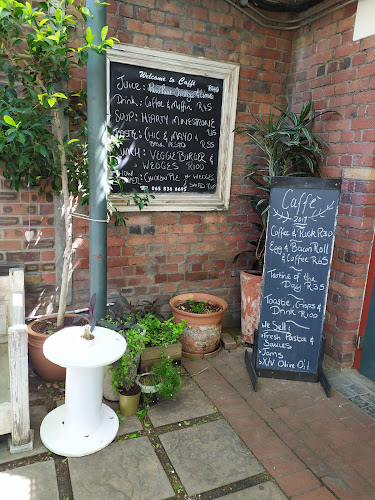 Welcome to Caffé
Juice:
Drink: Coffee & Muffin R45
Soup: Hearty Minestrone
Toastie: Chic & Mayo &
Lunch: Veggie Burger
& Wedges R100
Chicken Pie
Wedges
Caffé
2017
Coffee & Rusk R30
Egg & Bacon Roll
& Coffee R65
Tartine of the
Day R35
Toastie, Crisps &
Drink R100
We Sell:
- Fresh Pasta &
Sauces
- Jams
- X/V Olive Oil